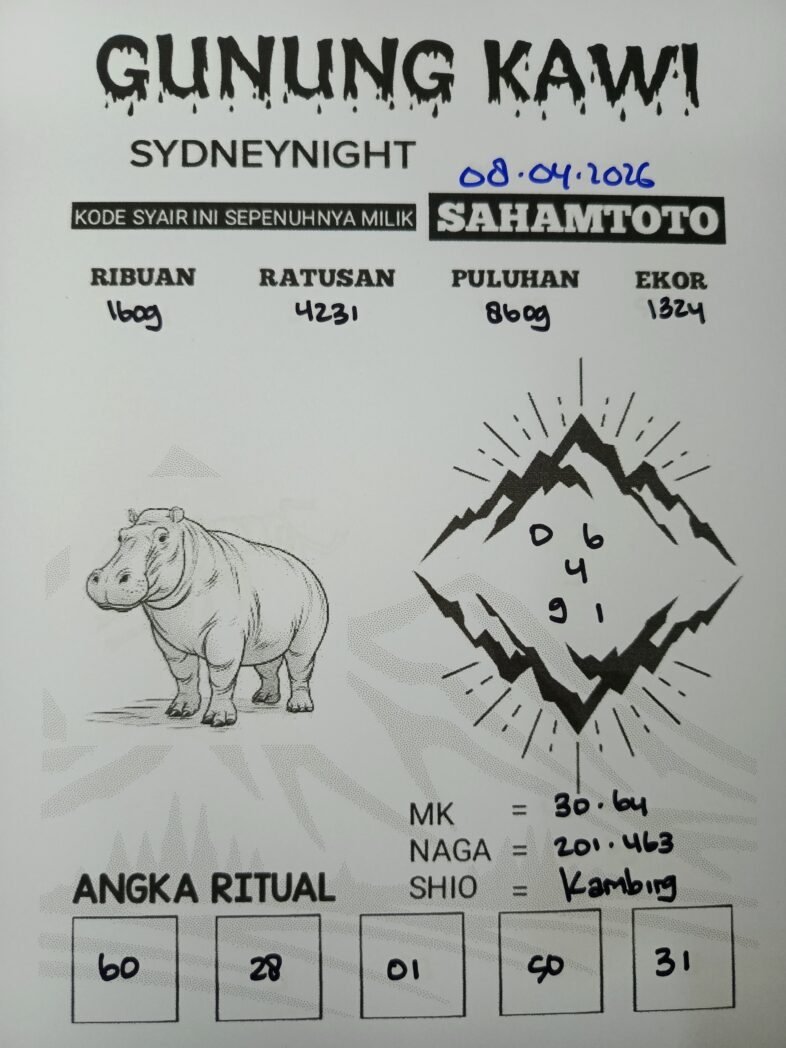 GUNUNG KAWI
SYDNEYNIGHT
08.04.2026
KODE SYAIR INI SEPENUHNYA MILIK SAHAMTOTO
RIBUAN RATUSAN PULUHAN EKOR
1609 4231 8609 1324
0 6
4
9 1
MK = 30.64
NAGA = 201.463
SHIO = Kambing
ANGKA RITUAL
60 28 01 50 31